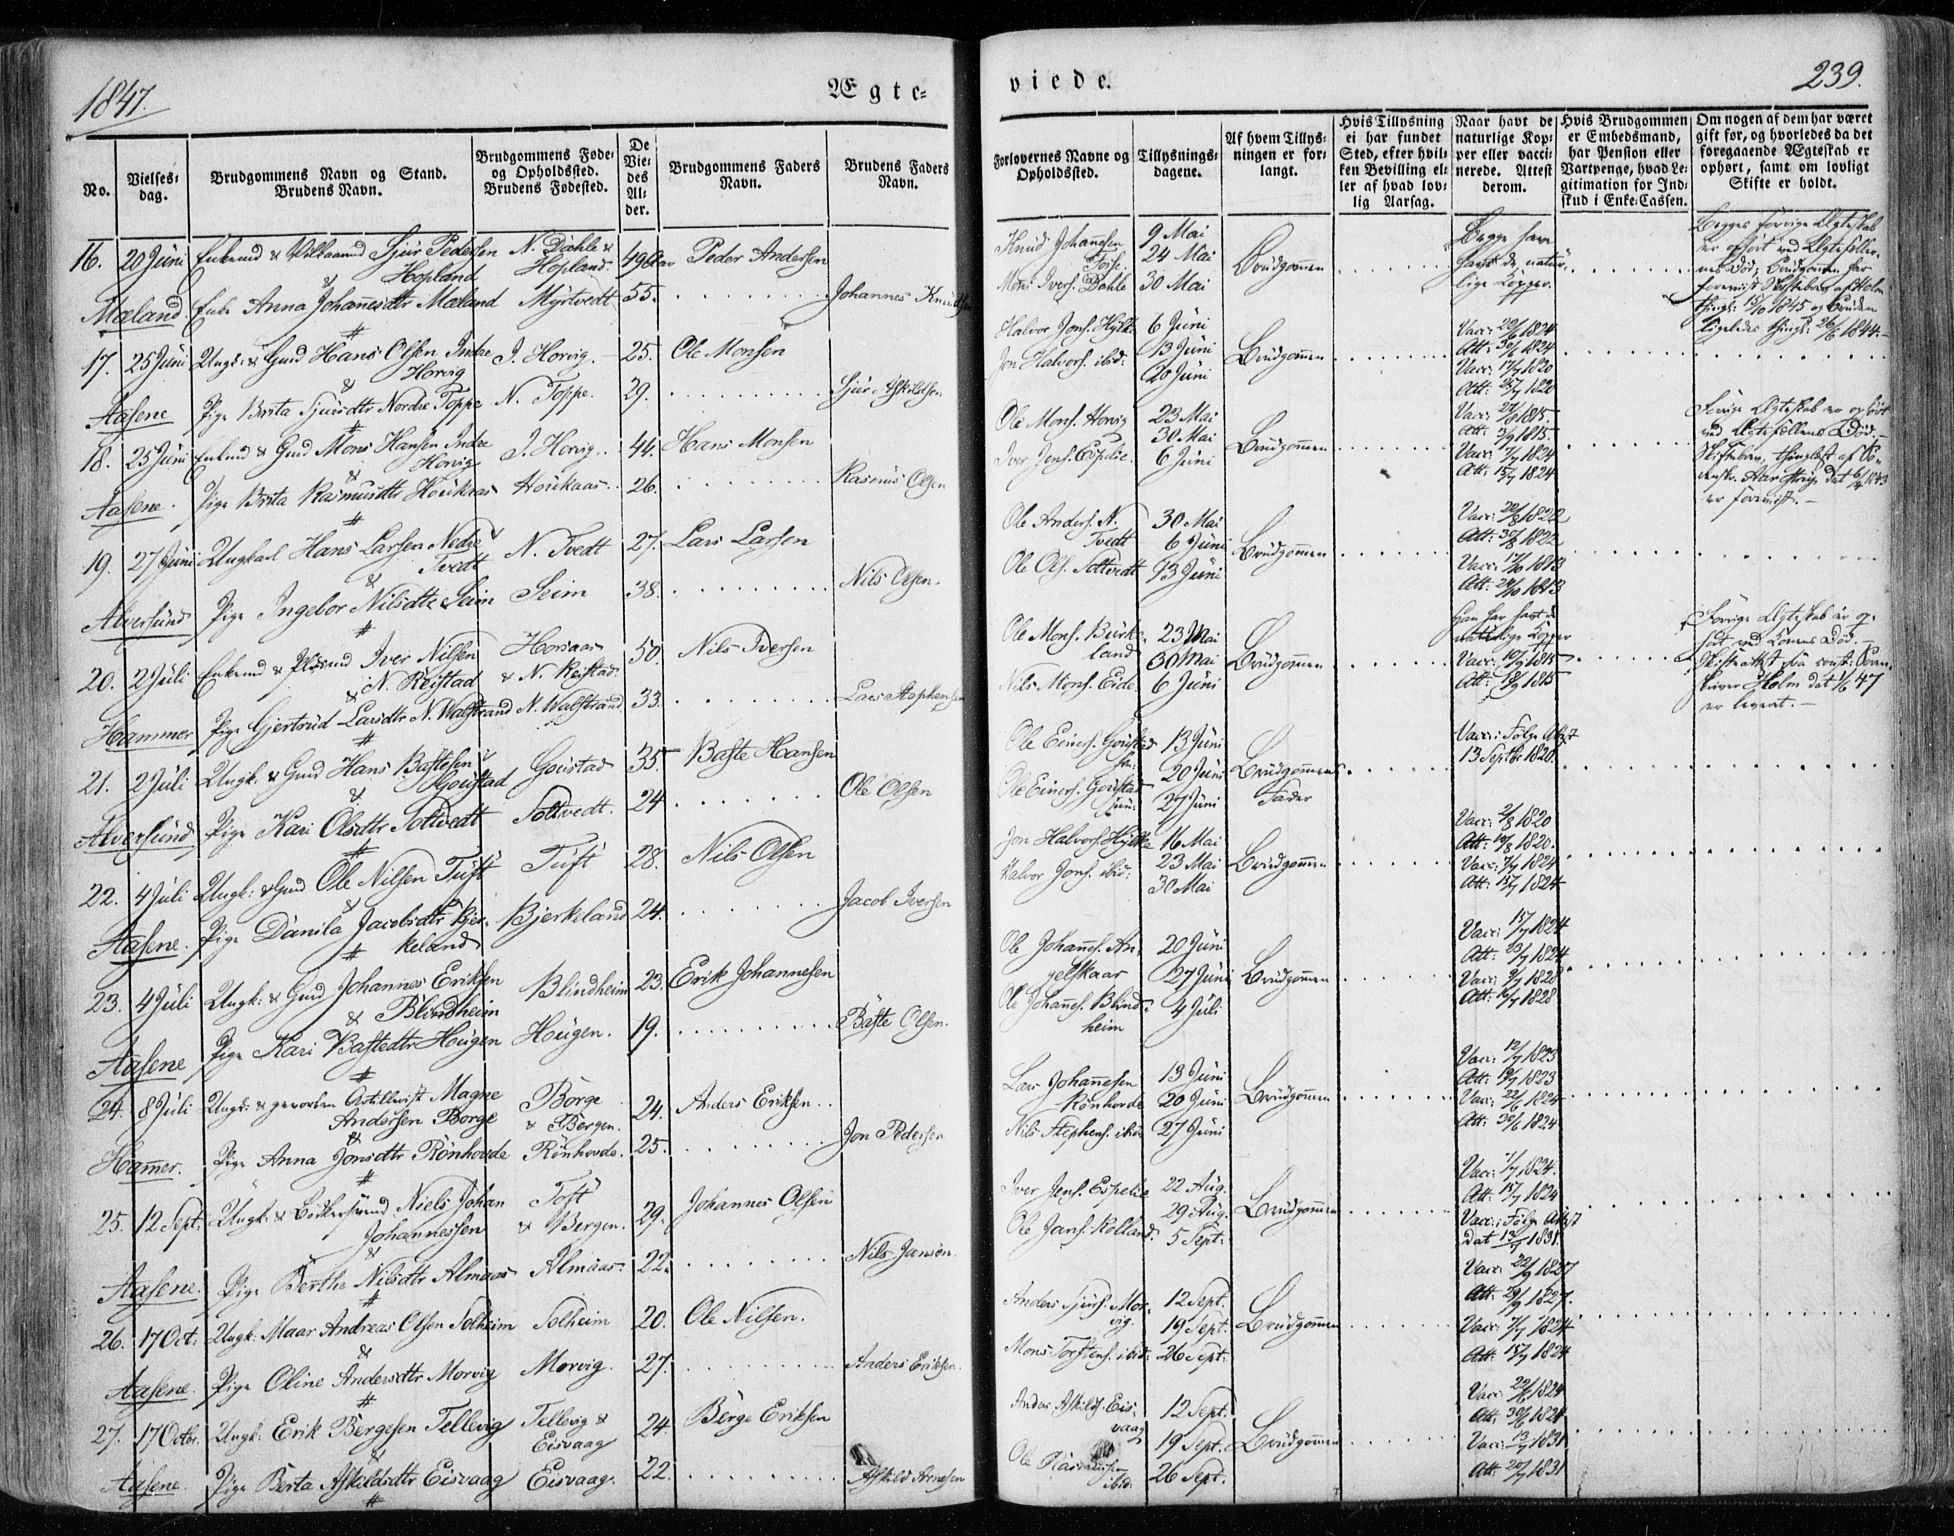 1847.
Ægte-
viede.
239.
No.
Vielses-
dag.
Brudgommens Navn og Stand.
Brudens Navn.
Brudgommens Føde-
og Opholdssted.
Brudens Fødested.
De
Vie-
des
Al-
der.
Brudgommens Faders
Navn.
Brudens Faders
Navn.
Forlovernes Navne og
Opholdssted.
Tillysnings-
dagene.
Af hvem Tillys-
ningen er for-
langt.
Hvis Tillysning
ei har fundet
Sted, efter hvil-
ken Bevilling el-
ler af hvad lov-
lig Aarsag.
Naar havt de
naturlige Kop-
per eller vacci-
nerede. Attest
derom.
Hvis Brudgommen
er Embedsmand,
har Pension eller
Vartpenge, hvad Le-
gitimation for Ind-
skud i Enke-Cassen.
Om nogen af dem har været
gift før, og hvorledes da det
foregaaende Ægteskab er
ophørt, samt om lovligt
Skifte er holdt.
16. 20 Juni Enkemd & Sjur Pedersen N. Døhle & 49 Peder Andersen
Hopland Hopland.
&
Mæland. Enke Anna Johannesdtr Mæland Myrtvedt 55. Johannes Knudsen
Knud Johannesen 9 Mai
Tofte 24 Mai Brudgommen
Mons Ivers. Dohle 30 Mai
Begge have
havt de natur-
lige Kopper.
Begges forrige Ægteskab
er ophørt ved Ægtefeller-
nes Død;
17. 25 Juni Ungk: & Gmd Hans Olsen Indre I. Horvig 25. Ole Monsen
Horvig
&
Aasene Pige Brita Sjursdtr Nordre Toppe N. Toppe. 29. Sjur Askildsen
Halvor Jons. Hylk. 6 Juni
Jon Halvors. ibid: 13 Juni Brudgommen
20 Juni
Vacc: 22/6 1824
Att: 30/6 1824
Vacc: 17/7 1820
Att: 25/7 1820
18. 25 Juni Enkmd & Gmd Mons Hansen Indre I. Horvig. 44. Hans Monsen
Horvig
&
Aasene. Pige Brita Rasmusdtr Houkaas Houkaas 26. Rasmus Olsen
Ole Mons. Horvig 23 Mai
30 Mai Brudgommen
Iver Jens. Espelie. 6 Juni
Vacc: 27/8 1815
Att: 3/9 1815.
Vacc: 7/7 1824
Att: 15/7 1824
Forrige Ægteskab er ophørt
ved Ægtefellens Død.
er foreviist.
19. 27 Juni Ungkarl Hans Larsen Nedre N. Tvedt 27. Lars Larsen
Tvedt
&
Alversund Pige Ingebor Nilsdtr Seim Seim 38. Nils Olsen.
Ole Anders. N. 30 Mai
Tvedt 6 Juni Brudgommen
Ole Ols. Soltvedt 13 Juni
Vacc: 22/8 1822
Att: 30/8 1822
Vacc: 17/10 1813
Att: 24/10 1813
20. 2 Juli Enkemd & Iver Nilsen Horsaas 50. Nils Iversen
& N. Reistad & N. Reistad.
Hammer Pige Gjertrud Larsdtr N. Walstrand N. Walstrand 33. Lars Stephensen
Ole Mons. Birke- 23 Mai
land 30 Mai Brudgommen
Nils Mons. Eide. 6 Juni
Han har havt de
naturlige Kopper
Vacc: 10/9 1815
Att: 18/9 1815
Forrige Ægteskab er op-
løst ved Konens Død.
Skifteattst fra const: Soren-
skriver Holm dat 1/6 47
er leveret.
21. 2 Juli Ungk: & Gmd Hans Bastesen Goustad 35. Baste Hansen
Goustad
&
Alversund Pige Kari Olsdtr Soltvedt Soltvedt. 24 Ole Olsen
Ole Einers. Goustad 13 Juni
20 Juni Brudgommens
Ole Einers. Goustad 27 Juni Fader
jun:
Vacc: ifølge Attest
13 Septbr 1820.
22. 4 Juli Ungk: & Gmd Ole Nilsen Tuft Tuft 28. Nils Olsen
&
Aasene. Pige Danila Jacobsdtr Bjer- Bjerkeland 24. Jacob Iversen
keland
Jon Halvors. Hylke 16 Mai
23 Mai Brudgommen
Halvor Jons. ibid: 30 Mai
Vacc: 2/8 1820
Att: 10/8 1820.
Vacc: 7/7 1824
Att: 15/7 1824
23. 4 Juli Ungk: & Gmd Johannes Eriksen Blindheim 23. Erik Johannesen
& Blindheim
Aasene Pige Kari Bastedtr Hougen Hougen. 19. Baste Olsen.
Ole Johans. An- 20 Juni
gelskaar 27 Juni Brudgommen
Ole Johans. Blind- 4 Juli
heim
Vacc: 15/7 1824
Att: 23/7 1824
Vacc: 9/7 1828
Att: 16/7 1828
24. 8 Juli Ungk: & gevorben Artillerist Magne Børge 24. Anders Eriksen.
Andersen Børge & Bergen.
&
Hammer. Pige Anna Jonsdtr Rönhovde Rönhovde. 25. Jon Pedersen
Lars Johannesen 13 Juni
Rönhovde 20 Juni Brudgommen
Nils Stephens. ibid: 27 Juni
Vacc: 12/7 1823
Att: 19/7 1823
Vacc: 22/6 1824
Att: 30/6 1824
25. 12 Sept: Ungk: & Bødkersvend Niels Johan Toft 29. Johannes Olsen
Johannessen & Bergen.
&
Aasene. Pige Berthe Nilsdtr Almaas Almaas. 22. Nils Jansen.
Iver Jens. Espelie 22 Aug.
29 Aug. Brudgommen
Ole Jans. Kolland. 5 Sept:
Vacc: 7/7 1824.
Att: 15/7 1824
Vacc: ifølge Attest
dat 13/7 1831.
26. 17 Oct: Ungk: Maar Andreas Olsen Solheim Solheim 20. Ole Nilsen.
&
Aasene. Pige Oline Andersdtr Morvig Morvig. 27. Anders Eriksen.
Anders Sjurs. Mor- 12 Sept.
vig. 19 Sept. Brudgommen
Mons Torstens. ibid: 26 Sept:
Vacc: 22/9 1827
Att: 29/9 1827.
Vacc: 7/7 1824
Att: 15/7 1824
27. 17 Octbr. Ungk: Erik Børgesen Tellevig Tellevig & 24. Børge Eriksen
Eisvaag
&
Aasene. Pige Berta Askildsdtr Eisvaag Eisvaag. 22. Askild Arnesen
Anders Askilds. Eis- 12 Sept.
vaag 19 Sept. Brudgommen
Ole Rasmussen 26 Sept.
ibid:
Vacc: 22/6 1824
Att: 30/6 1824
Vacc: 13/7 1831
Att: 20/7 1831